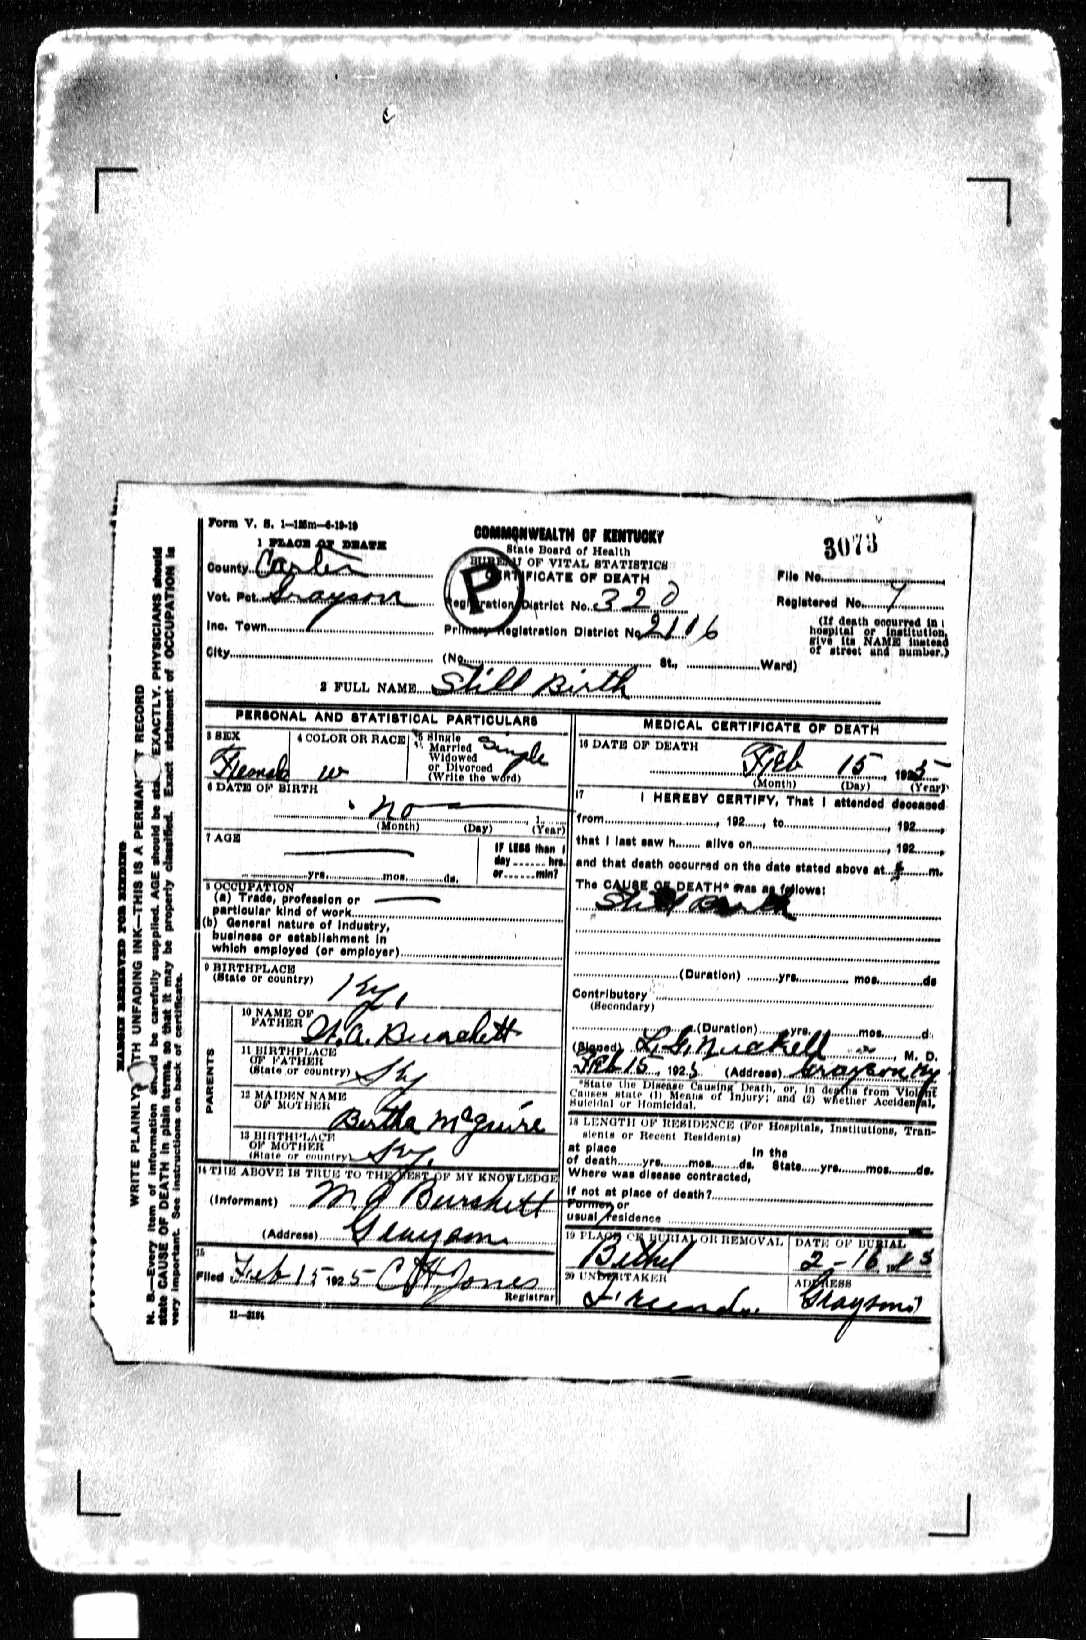 Form V. S. 1—125m—6-19-19
1 PLACE OF DEATH
COMMONWEALTH OF KENTUCKY
State Board of Health
BUREAU OF VITAL STATISTICS
CERTIFICATE OF DEATH
P
3073
File No.
County Carter
Vot. Pct. Grayson
Registration District No. 320
Registered No. 7
Inc. Town
Primary Registration District No. 2116
(If death occurred in a
hospital or institution,
give its NAME instead
of street and number.)
City
(No. St., Ward)
2 FULL NAME Still Birth
PERSONAL AND STATISTICAL PARTICULARS
3 SEX
Female
4 COLOR OR RACE
W
5 Single
Married
Widowed
or Divorced
(Write the word)
Single
6 DATE OF BIRTH
no
(Month) (Day) (Year)
7 AGE
yrs. mos. ds.
IF LESS than 1
day hrs.
or min?
8 OCCUPATION
(a) Trade, profession or
particular kind of work
(b) General nature of industry,
business or establishment in
which employed (or employer)
9 BIRTHPLACE
(State or country)
Ky.
PARENTS
10 NAME OF
FATHER
Burchett
11 BIRTHPLACE
OF FATHER
(State or country)
Ky
12 MAIDEN NAME
OF MOTHER
Bertha McGuire
13 BIRTHPLACE
OF MOTHER
(State or country)
Ky.
14 THE ABOVE IS TRUE TO THE BEST OF MY KNOWLEDGE
(Informant) Burchett
(Address) Grayson
15
Filed Feb 15 1925 C H Jones
Registrar
11—3184
MEDICAL CERTIFICATE OF DEATH
16 DATE OF DEATH
Feb 15, 1925
(Month) (Day) (Year)
17
I HEREBY CERTIFY, That I attended deceased
from , 192 , to , 192 ,
that I last saw h alive on , 192 ,
and that death occurred on the date stated above at m.
The CAUSE OF DEATH* was as follows:
Still Birth
(Duration) yrs. mos. ds
Contributory
(Secondary)
(Duration) yrs. mos. d.
(Signed) L. G. , M. D.
Feb 15, 1925 (Address) Grayson Ky
*State the Disease Causing Death, or, in deaths from Violent
Causes state (1) Means of Injury; and (2) whether Accidental,
Suicidal or Homicidal.
18 LENGTH OF RESIDENCE (For Hospitals, Institutions, Tran-
sients or Recent Residents)
at place In the
of death yrs. mos. ds. State yrs. mos. ds.
Where was disease contracted,
if not at place of death?
Former or
usual residence
19 PLACE OF BURIAL OR REMOVAL
Bethel
DATE OF BURIAL
2-16, 1925
20 UNDERTAKER
Friends.
ADDRESS
Grayson
MARGIN RESERVED FOR BINDING
WRITE PLAINLY WITH UNFADING INK—THIS IS A PERMANENT RECORD
N. B.—Every item of information should be carefully supplied. AGE should be stated EXACTLY. PHYSICIANS should
state CAUSE OF DEATH in plain terms, so that it may be properly classified. Exact statement of OCCUPATION is
very important. See instructions on back of certificate.